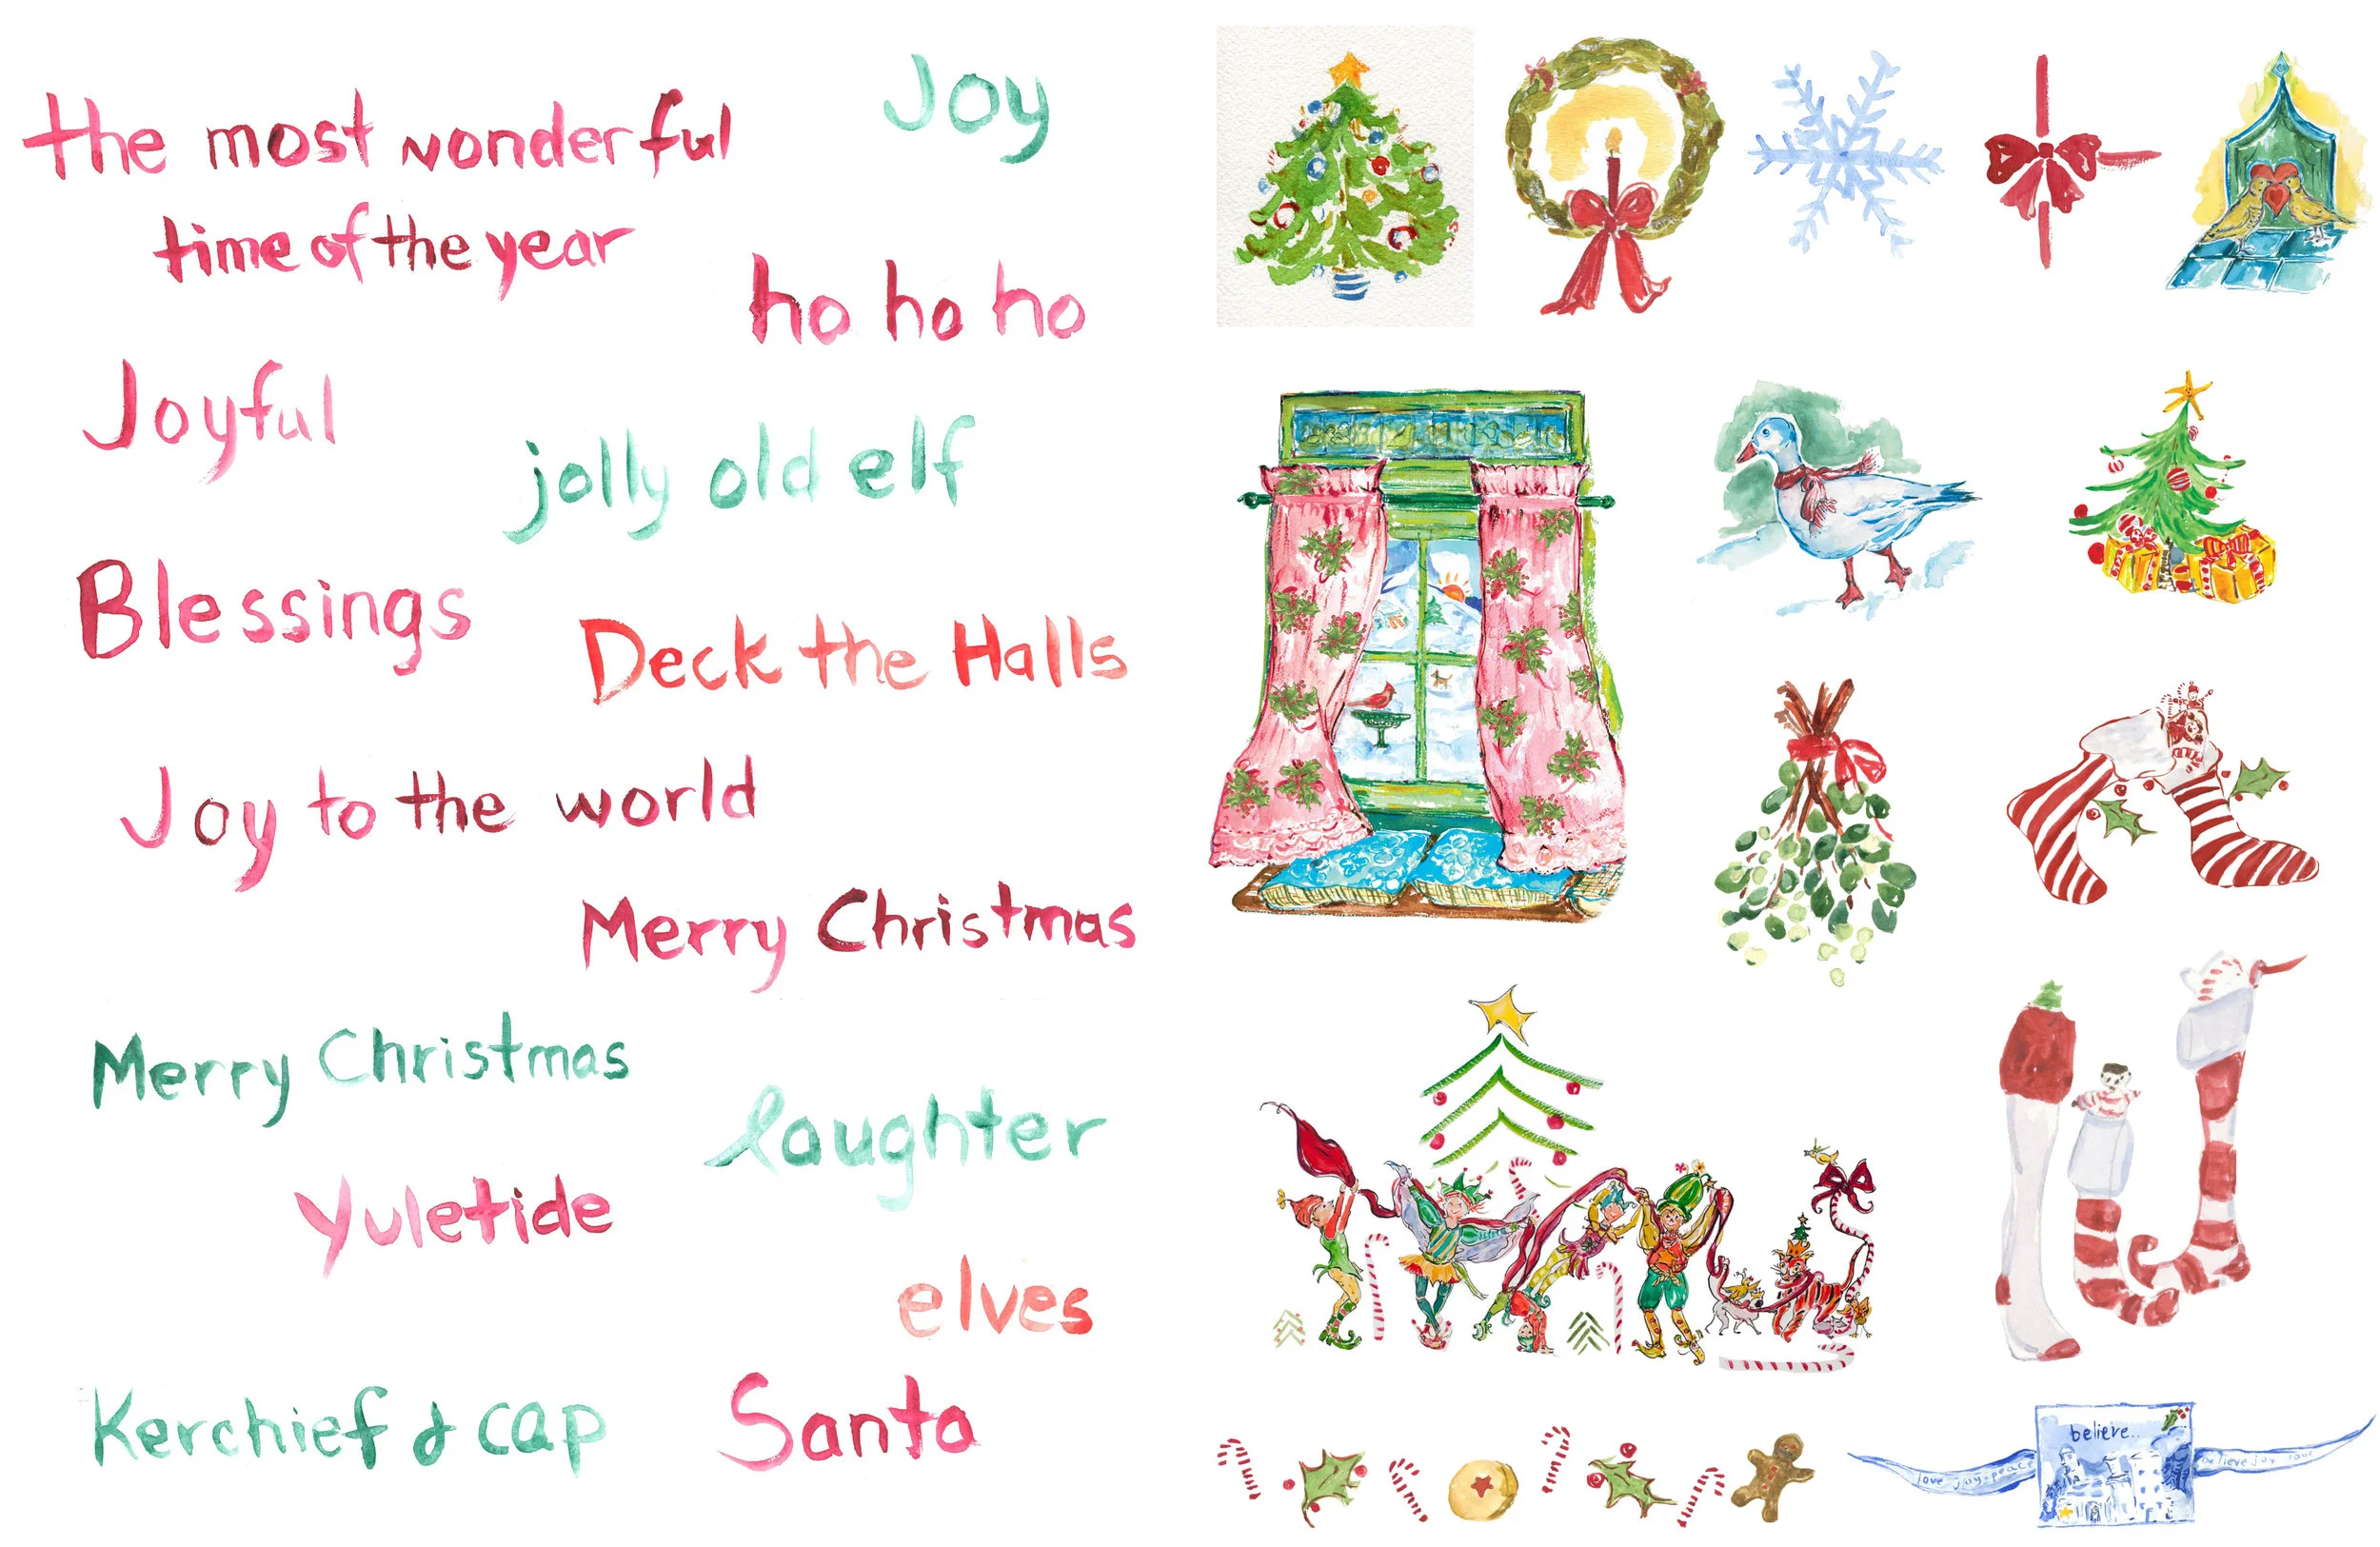 the most wonderful
time of the year
Joy
ho ho ho
Joyful
jolly old elf
Blessings
Deck the Halls
Joy to the world
Merry Christmas
Merry Christmas
laughter
Yuletide
elves
Kerchief & cap
Santa
believe..
love joy peace
believe joy love